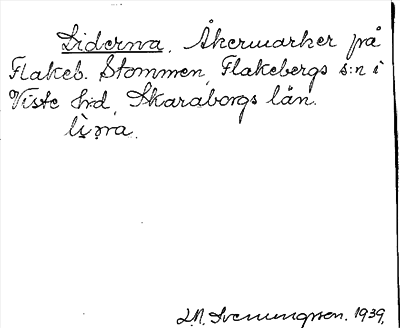 Liderna. Åkermarker på
Flakeb. Stommen, Flakebergs s:n i
Viste hd, Skaraborgs län.
S. M. Svenungsson. 1939.